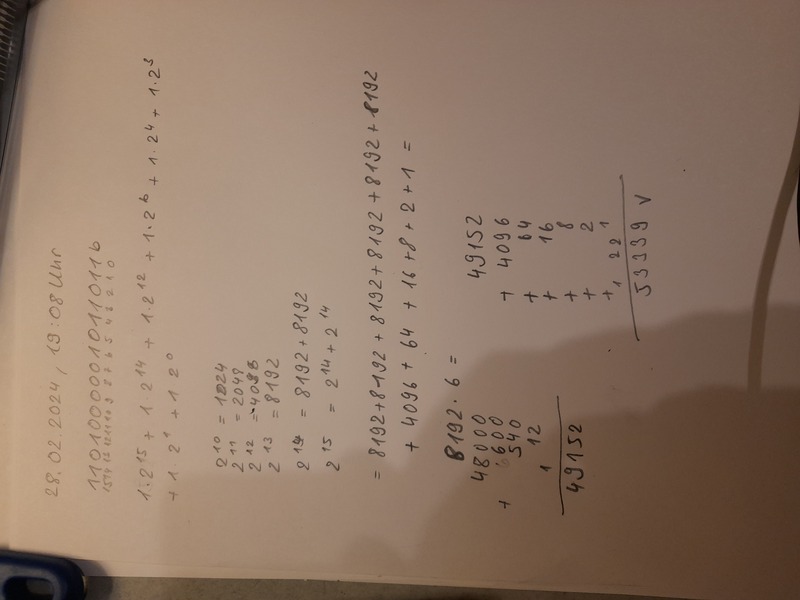 28.02.2024, 19:08 Uhr
1101000001011011b
15 14 13 12 11 10 9 8 7 6 5 4 3 2 1 0
1·2¹⁵ + 1·2¹⁴ + 1·2¹² + 1·2⁶ + 1·2⁴ + 1·2³
+ 1·2¹ + 1·2⁰
2¹⁰ = 1024
2¹¹ = 2048
2¹² = 4096
2¹³ = 8192
2¹⁴ = 8192 + 8192
2¹⁵ = 2¹⁴ + 2¹⁴
= 8192 + 8192 + 8192 + 8192 + 8192 + 8192
+ 4096 + 64 + 16 + 8 + 2 + 1 =
8192 · 6 =
48000
+ 600
540
12
1
49152
49152
+ 4096
+ 64
+ 16
+ 8
+ 2
+ 1
1 2 2
53339 √